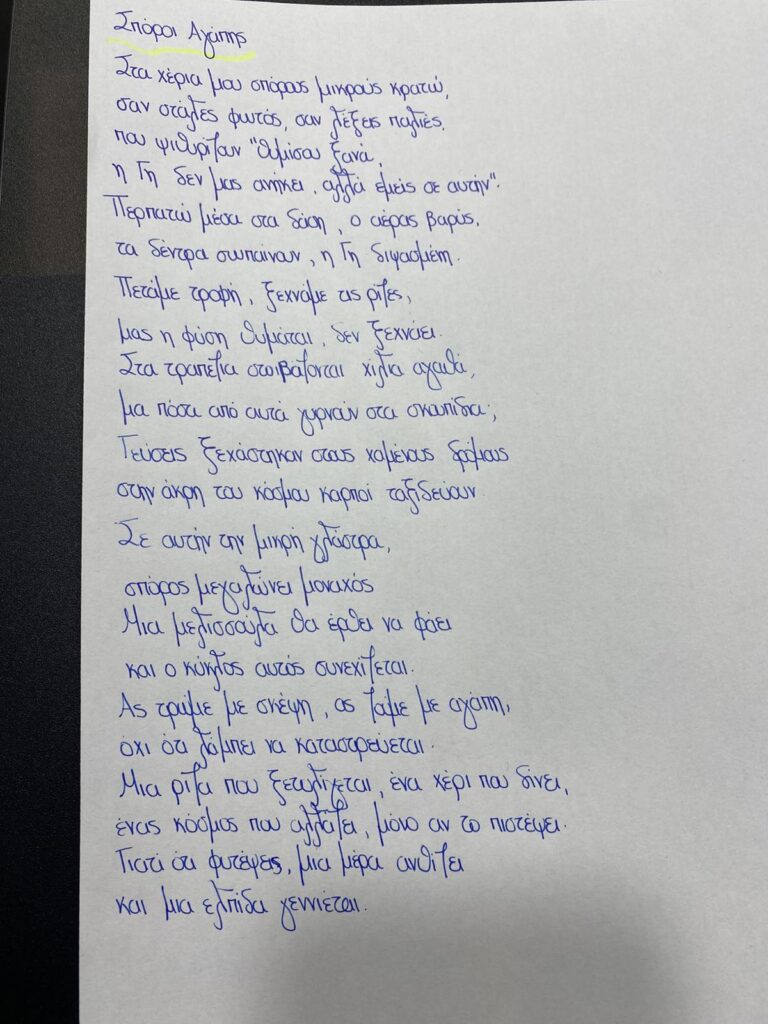 Σπόροι Αγάπης
Στα χέρια μου σπόρους μικρούς κρατώ,
σαν στάλες φωτός, σαν λέξεις παλιές,
που ψιθυρίζαν "θυμίσου ξανά,
η Γη δεν μας ανήκει, αλλά εμείς σε αυτήν".
Περπατώ μέσα στα δάση, ο αέρας βαρύς,
τα δέντρα σωπαίνουν, η Γη διψασμένη.
Πετάμε τροφή, ξεχνάμε τις ρίζες,
μας η φύση θυμάται, δεν ξεχνάει.
Στα τραπέζια στοιβάζονται χίλια αγαθά,
μα πόσα από αυτά γυρνούν στα σκουπίδια;,
Γεύσεις ξεχάστηκαν στους χαμένους δρόμους
στην άκρη του κόσμου καρποί ταξιδεύουν.
Σε αυτήν την μικρή γλάστρα,
σπόρος μεγαλώνει μοναχός
Μια μελισσούλα θα έρθει να φάει
και ο κύκλος αυτός συνεχίζεται.
Ας τρώμε με σκέψη, ας ζαμε με αγάπη,
όχι ότι λάμπει να καταστρεύεται.
Μια ρίζα που ξετυλίγεται, ένα χέρι που δίνει,
ένας κόσμος που αλλάζει, μόνο αν το πιστέψει.
Γιατί ότι φυτέψεις, μια μέρα ανθίζει
και μια ελπίδα γεννιέται.